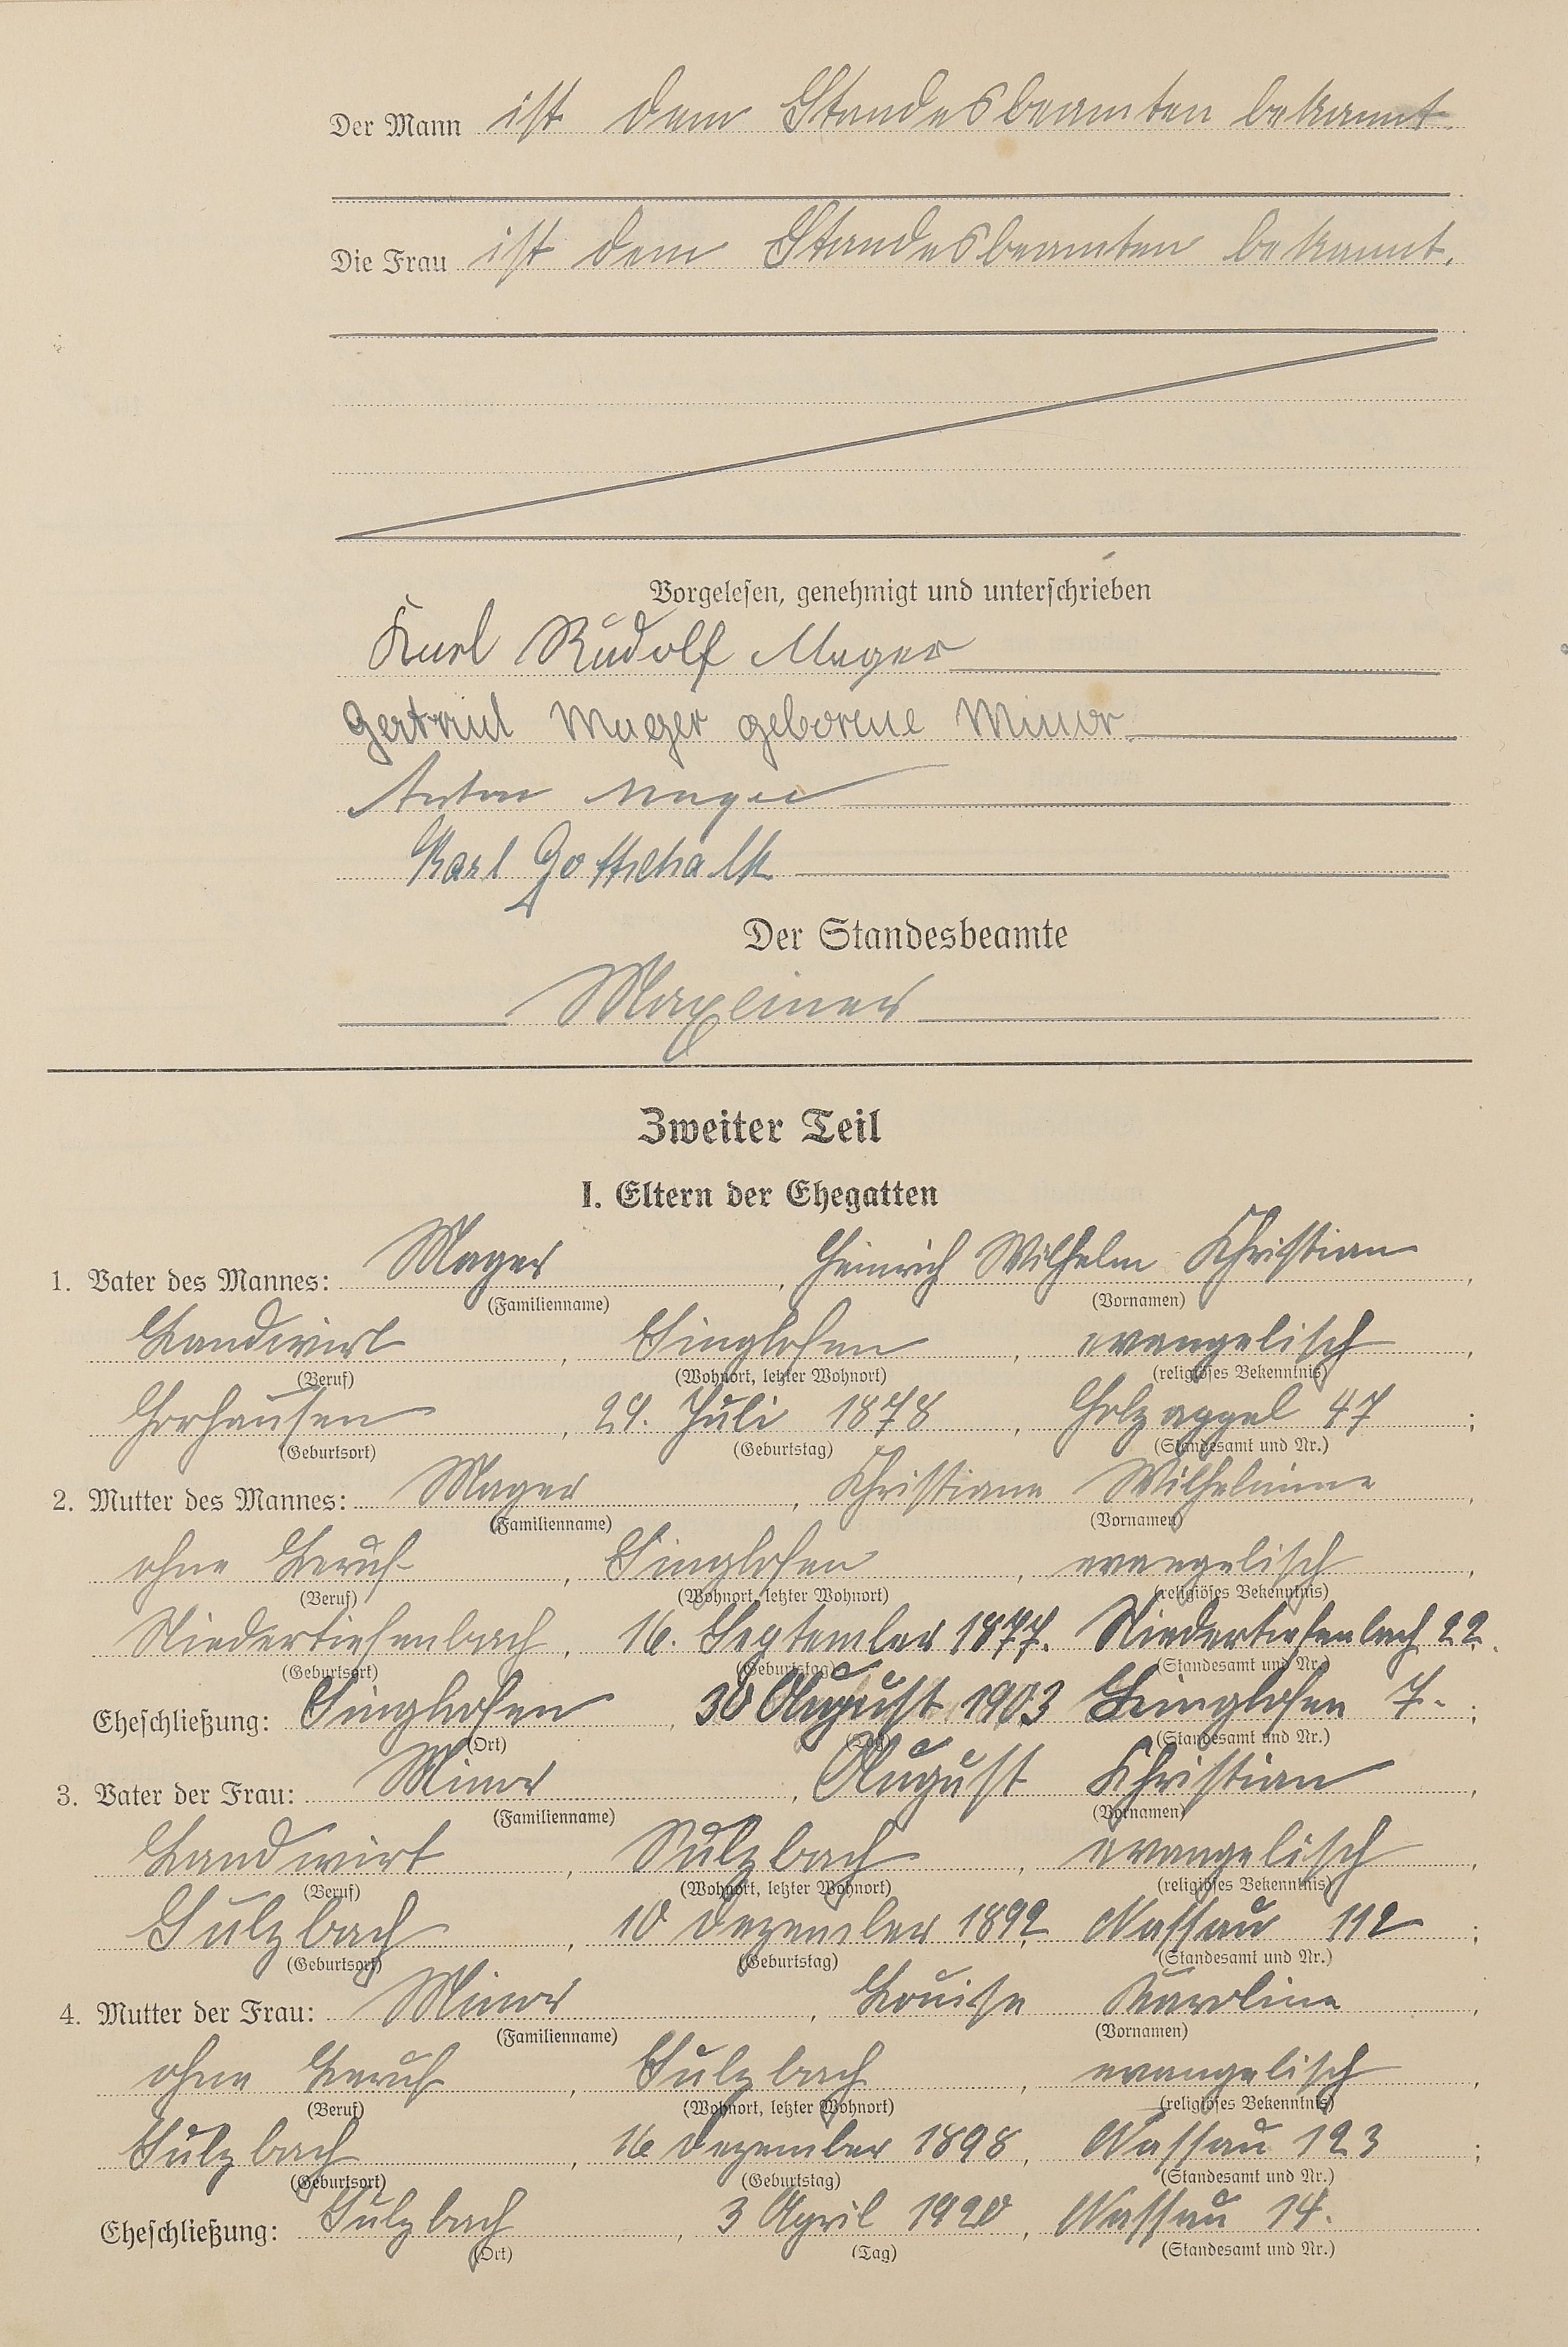 Der Mann ist dem Standesbeamten bekannt.
Die Frau ist dem Standesbeamten bekannt.
Vorgelesen, genehmigt und unterschrieben
Karl Rudolf Mager
Gertrud Mager geborene Minor
Anton Mager
Karl Gottschalk
Der Standesbeamte
Maxeiner
Zweiter Teil
I. Eltern der Ehegatten
1. Vater des Mannes: Mager, Heinrich Wilhelm Christian,
(Familienname) (Vornamen)
Landwirt, Singhofen, evangelisch,
(Beruf) (Wohnort, letzter Wohnort) (religiöses Bekenntnis)
Horhausen, 24. Juli 1878, Holzappel 47;
(Geburtsort) (Geburtstag) (Standesamt und Nr.)
2. Mutter des Mannes: Mager, Christiane Wilhelmine,
(Familienname) (Vornamen)
ohne Beruf, Singhofen, evangelisch,
(Beruf) (Wohnort, letzter Wohnort) (religiöses Bekenntnis)
Niedertiefenbach, 16. September 1877. Niedertiefenbach 22.
(Geburtsort) (Geburtstag) (Standesamt und Nr.)
Eheschließung: Singhofen, 30 August 1903 Singhofen 7.;
(Ort) (Tag) (Standesamt und Nr.)
3. Vater der Frau: Minor, August Christian,
(Familienname) (Vornamen)
Landwirt, Sulzbach, evangelisch,
(Beruf) (Wohnort, letzter Wohnort) (religiöses Bekenntnis)
Sulzbach, 10 Dezember 1892 Nassau 112;
(Geburtsort) (Geburtstag) (Standesamt und Nr.)
4. Mutter der Frau: Minor, Louise Karoline,
(Familienname) (Vornamen)
ohne Beruf, Sulzbach, evangelisch,
(Beruf) (Wohnort, letzter Wohnort) (religiöses Bekenntnis)
Sulzbach, 16 Dezember 1898, Nassau 123;
(Geburtsort) (Geburtstag) (Standesamt und Nr.)
Eheschließung: Sulzbach, 3 April 1920, Nassau 14.
(Ort) (Tag) (Standesamt und Nr.)